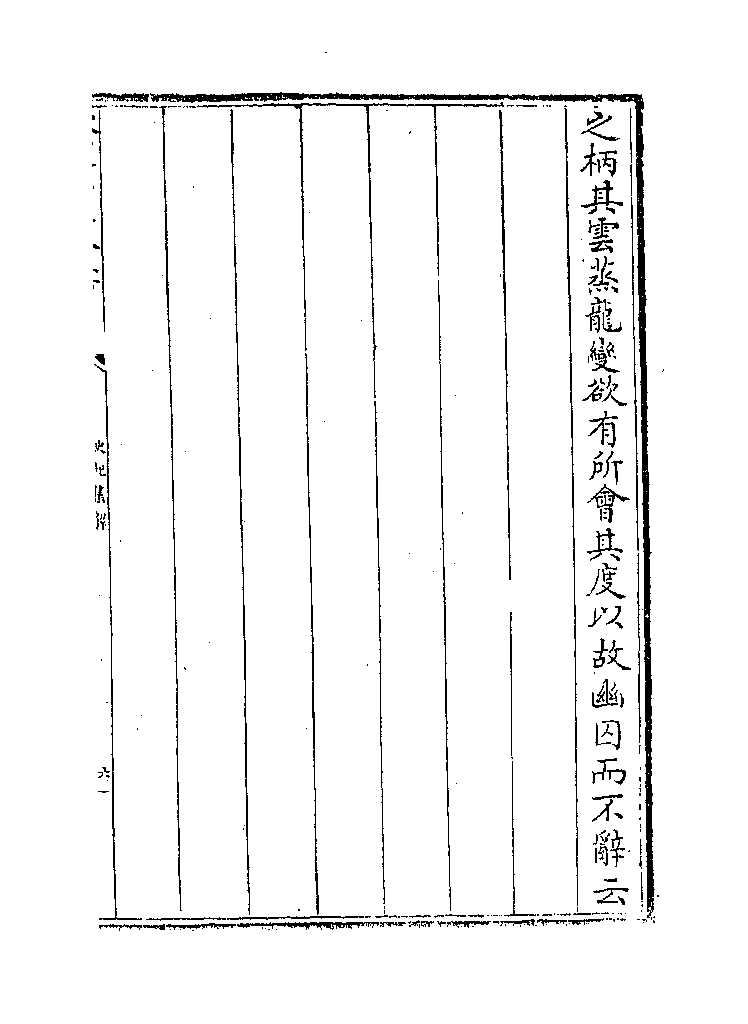 之柄其雲蒸龍變欲有所會其度以故幽囚而不辭云
史記集解
六一